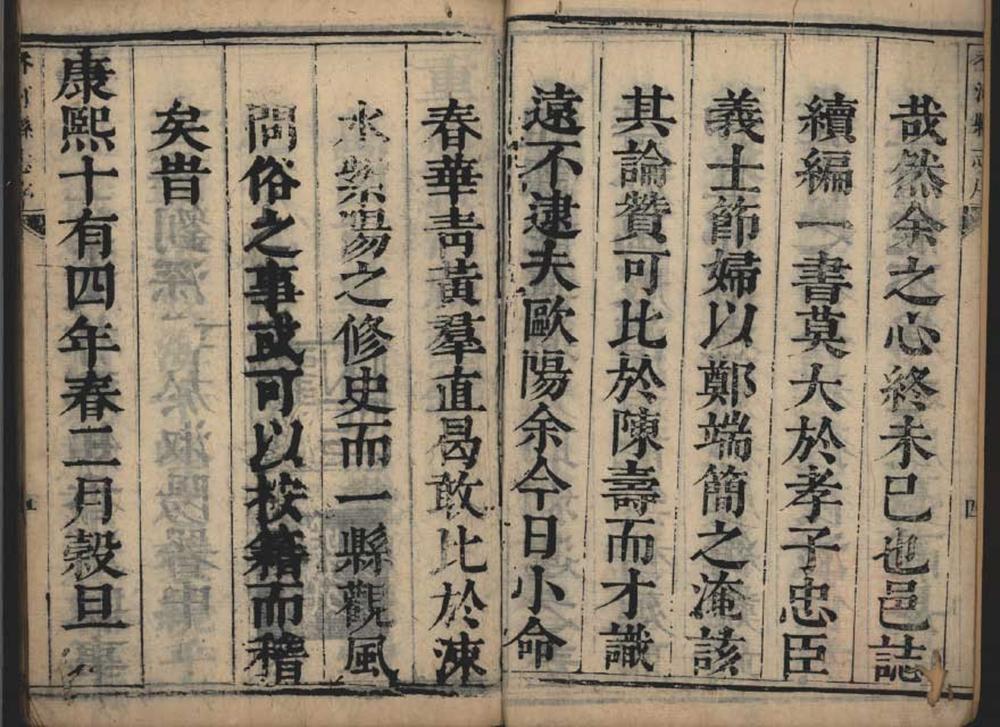 哉然余之心終未已也邑誌
續編一書莫大於孝子忠臣
義士節婦以鄭端簡之淹該
其論贊可比於陳壽而才識
遠不逮夫歐陽余今日小命
春華靑黃羣直曷敢比於涑
水紫陽之修史而一縣觀風
問俗之事或可以按籍而稽
矣旹
康熙十有四年春二月榖旦